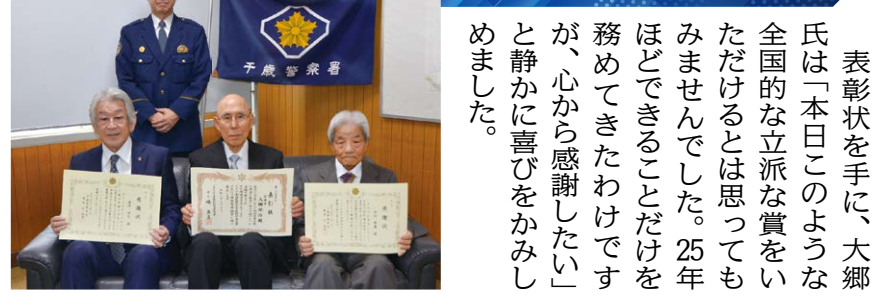 表彰状を手に、大郷
氏は「本日このような
全国的な立派な賞をい
ただけるとは思っても
みませんでした。25年
ほどできることだけを
務めてきたわけです
が、心から感謝したい」
と静かに喜びをかみし
めました。
千歳警察署
感謝状
表彰状
感謝状